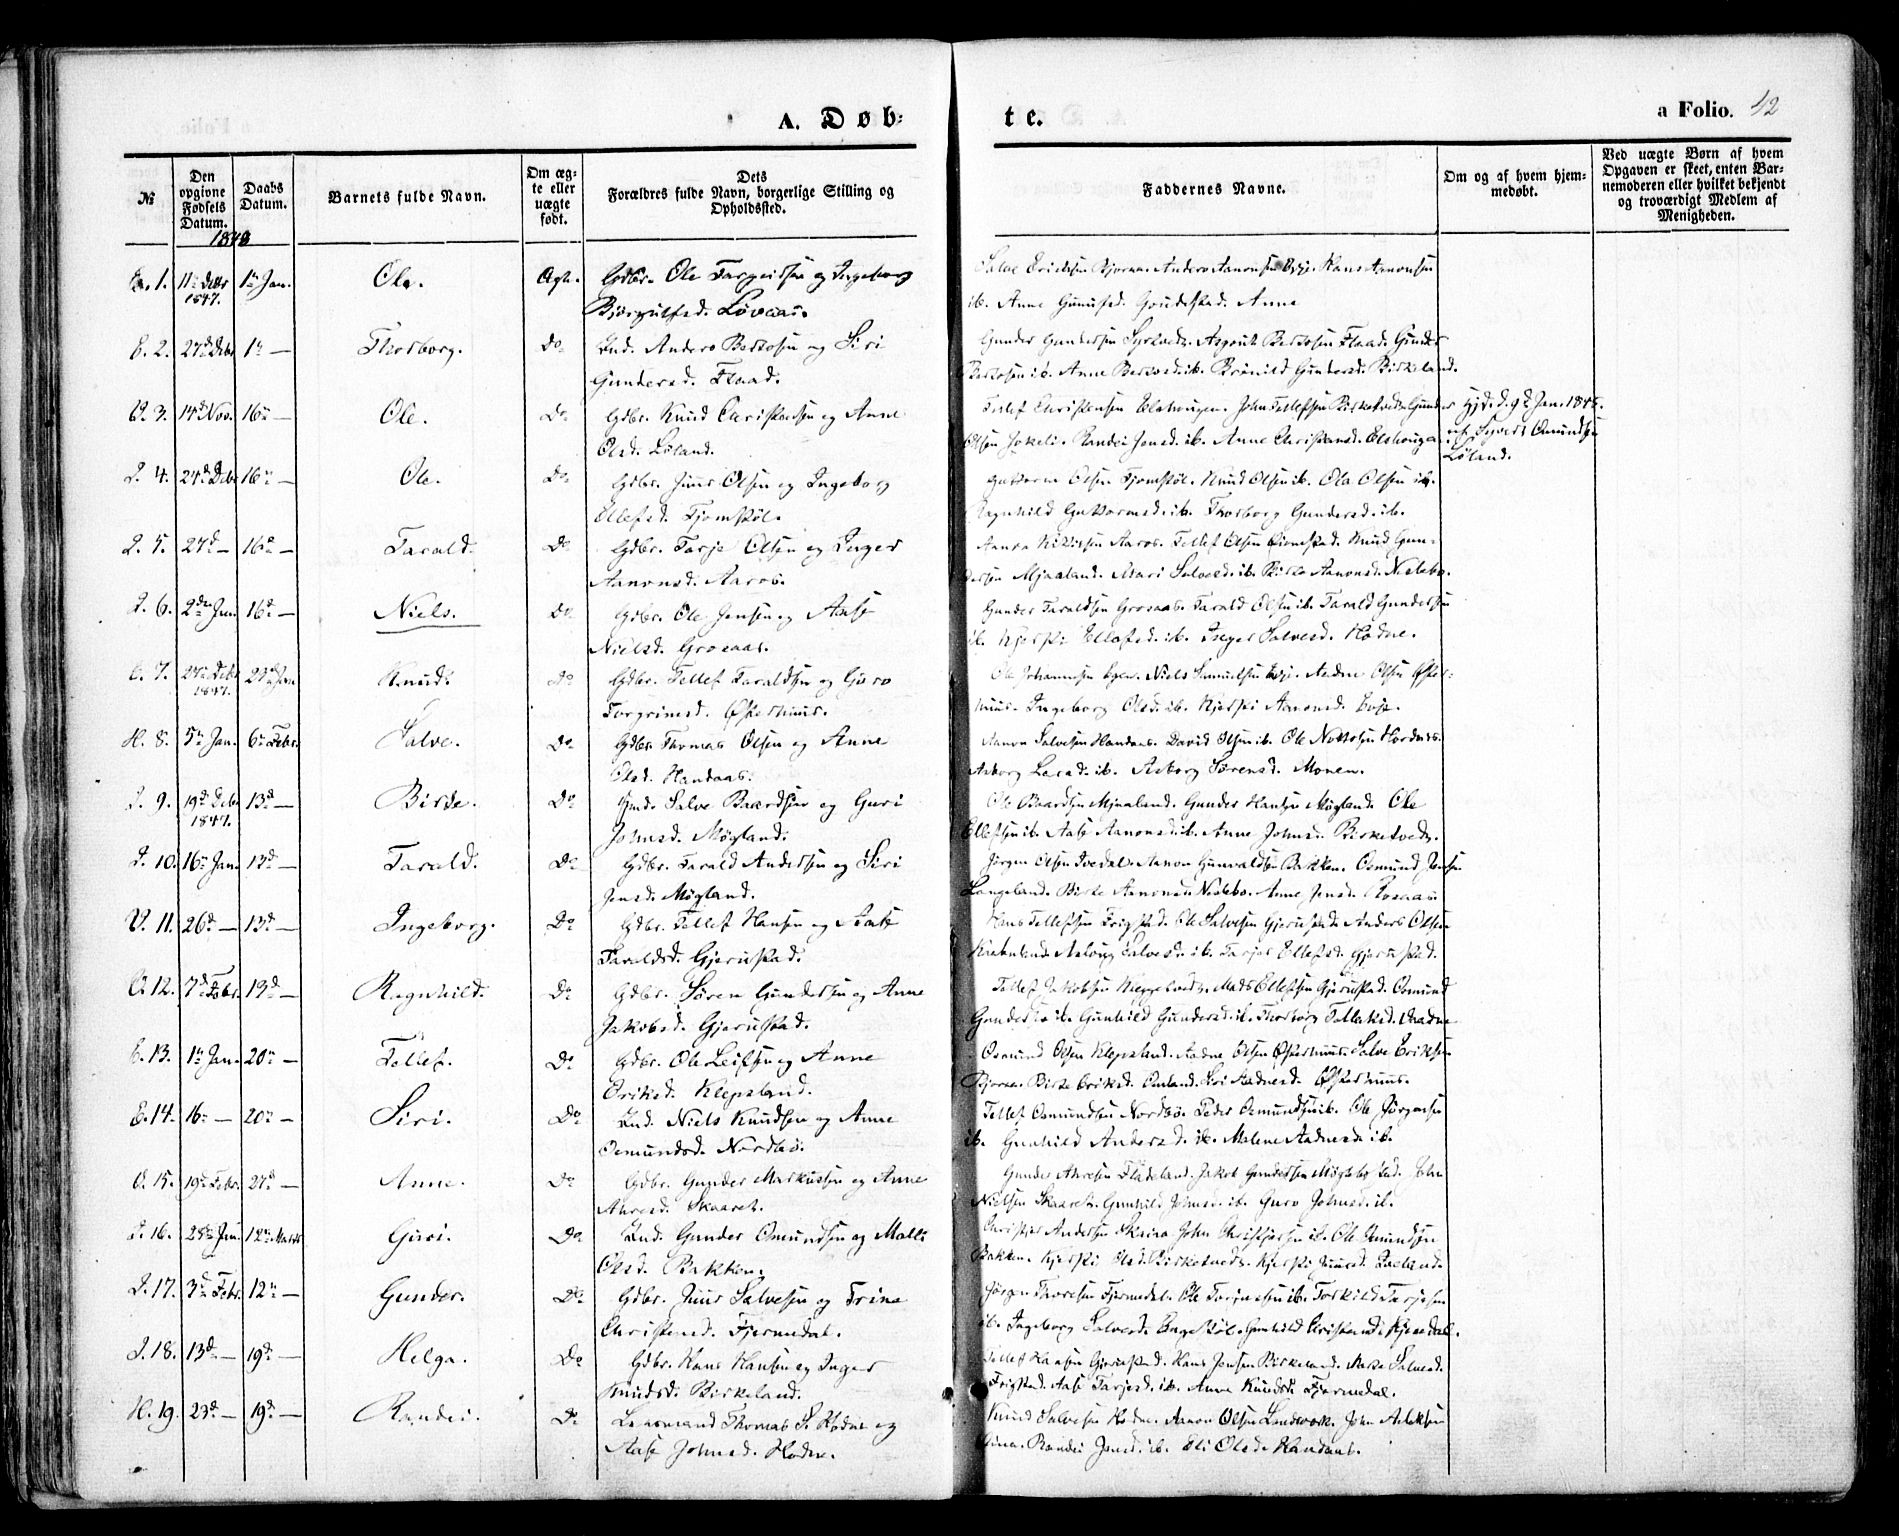 A. Døb-
te.
a Folio. 42
№
Den opgivne Fødsels Datum.
Daabs Datum.
Barnets fulde Navn.
Om ægte eller uægte født.
Dets Forældres fulde Navn, borgerlige Stilling og Opholdssted.
Faddernes Navne.
Om og af hvem hjemmedøbt.
Ved uægte Børn af hvem Opgaven er skeet, enten Barnemoderen eller hvilket bekjendt og troværdigt Medlem af Menigheden.
1848
E. 1. 11te Decbr 1847. 1ste Jan. Ole. Ægte. Gdbr. Ole Targeidsen og Ingeborg
Bjørgulfsd. Løvaas.
Salve Erichsen Bjoraa. Anders Aanonsen Evje. Hans Aanonsen
ib. Anne Gunulfsd. Anne
E. 2. 27de Debr 1ste — Thorborg. Do Ind. Anders Bertosen og Siri
Gundersd. Flaad.
Gunder Gundersen Syrtveit. Asgout Bertosen Flaad. Gunder
Bertosen ib. Anne Bertosd. ib. Brønild Gundersd. Birkeland.
O. 3. 14de Nov. 16de — Ole. Do Gdbr. Knud Christensen og Anne
Olsd. Løland.
Tellef Christensen Elshougen. John Tellefsen Birketveit. Gunder
Olsen Jokeli. Randei Jonsd. ib. Anne Christensd. Elshougen
Hjd. d. 9de Jan. 1848.
af Syvert Omundsen
Løland.
I. 4. 24de Debr 16de — Ole. Do Gdbr. Juur Olsen og Ingeborg
Ellefsd. Fjomstøl.
Guttorm Olsen Fjomstøl. Knud Olsen ib. Ola Olsen ib.
Ragnhild Guttormsd. ib. Thorborg Gundersd. ib.
I. 5. 27de — 16de — Tarald. Do Gdbr. Tarje Olsen og Inger
Aanonsd. Aaros.
Aaros. Tellef Olsen Knud Gun-
dersen Mjaaland. Mari Salvesd. ib. Birte Aanonsd. Neslebo.
I. 6. 2den Jan. 16de — Niels. Do Gdbr. Ole Jensen og Aase
Nielsd. Grosaas.
Gunder Taraldsen Grosaas. Tarald Olsen ib. Tarald Gundersen
ib. Kjersti Ellefsd. ib. Inger Salvesd. Hodne.
E. 7. 27de Debr 1847. 23de Jan Knud. Do Gdbr. Tellef Taraldsen og Guro
Torgrimsd. Østerhuus.
Ole Johannesen Niels Samuelsen Evje. Aadne Olsen Øster-
huus. Ingeborg Olsd. ib. Kjersti Aanonsd. Evje.
H. 8. 5te Jan. 6te Febr. Salve. Do Gdbr. Thomas Olsen og Anne
Olsd. Handaas.
Aanon Salvesen Handaas. David Olsen ib. Ole
Asborg ib. Asborg Sørensd. Monen.
I. 9. 19de Debr 1847. 13de — Birte. Do Salve Baardsen og Guri
Johnsd. Møgland.
Ole Baardsen Mjaaland. Gunder Hansen Møgland. Ole
Ellefsen ib. Aase Aanonsd. ib. Anne Johnsd. Birketveit.
I. 10. 16de Jan. 13de — Tarald. Do Gdbr. Tarald Andersen og Siri
Jensd. Møgland.
Jørgen Olsen Ivedal. Aanon Gunvaldsen Bakken. Osmund Jensen
Langeland. Birte Aanonsd. Neslebo. Anne Jensd. Rosaas.
V. 11. 26de — 13de — Ingeborg. Do Gdbr. Tellef Hansen og Aase
Taraldsd. Gjerustad.
Hans Tellefsen Frigstad. Ole Salvesen Gjerustad. Anders Olsen
Asloug Salvesd. ib. Ellefsd. Gjerustad.
O. 12. 7de Febr. 13de — Ragnhild. Do Gdbr. Søren Gundersen og Anne
Jakobsd. Gjerustad.
Tellef Jakobsen Mads Ellefsen Gjerustad. Osmund
Gundersen ib. Gunhild Gundersd. ib. Thorborg
E. 13. 1ste Jan. 20de — Tellef. Do Gdbr. Ole Leifsen og Anne
Eriksd. Klepsland.
Osmund Olsen Klepsland. Aadne Olsen Østerhuus. Salve Eriksen
Bjoraa. Birte Eriksd. Siri Aadnesd. Østerhuus.
E. 14. 16de — 20de — Siri. Do Ind. Niels Knudsen og Anne
Osmundsd. Nordbø.
Tellef Osmundsen Nordbø. Peder Osmundsen ib. Ole Jørgensen
ib. Gunhild Andersd. ib. Malene Aadnesd. ib.
O. 15. 19de Febr. 27de — Anne. Do Gdbr. Gunder Markussen og Anne
Ahresd. Skaaret.
Gunder Ahresen Flateland. Jakob Gundersen John
Nielsen Skaaret. Gunhild ib. Guro Johnsd. ib.
I. 16. 28de Jan. 12te Marts Guri. Do Ind. Gunder Omundsen og Malli
Olsd. Bakken.
Christopher Andersen John Christophersen ib. Ole Omundsen
Bakken. Kjersti Olsd. Birketveit. Kjersti
I. 17. 3de Febr. 12te — Gunder. Do Gdbr. Juur Salvesen og Trine
Christensd. Fjermedal.
Jørgen Thoresen Fjermedal. Ole ib. Torkild Tarjesen
ib. Ingeborg Salvesd. Engestøl. Gunhild Christensd.
I. 18. 13de — 19de — Helga. Do Gdbr. Hans Hansen og Inger
Knudsd. Birkeland.
Tellef Hansen Gjerustad. Hans Jensen Birkeland. Salvesd.
Frigstad. Aase Tarjesd. ib. Anne Knudsd. Fjermedal.
H. 19. 23de — 19de — Randei. Do Lensmand Thomas S. Hodne og
Aase Johnsd. Hodne.
Knud Salvesen Hodne. Aanon Olsen John
Randei Jonsd. ib. Eli Olsd. Handaas.